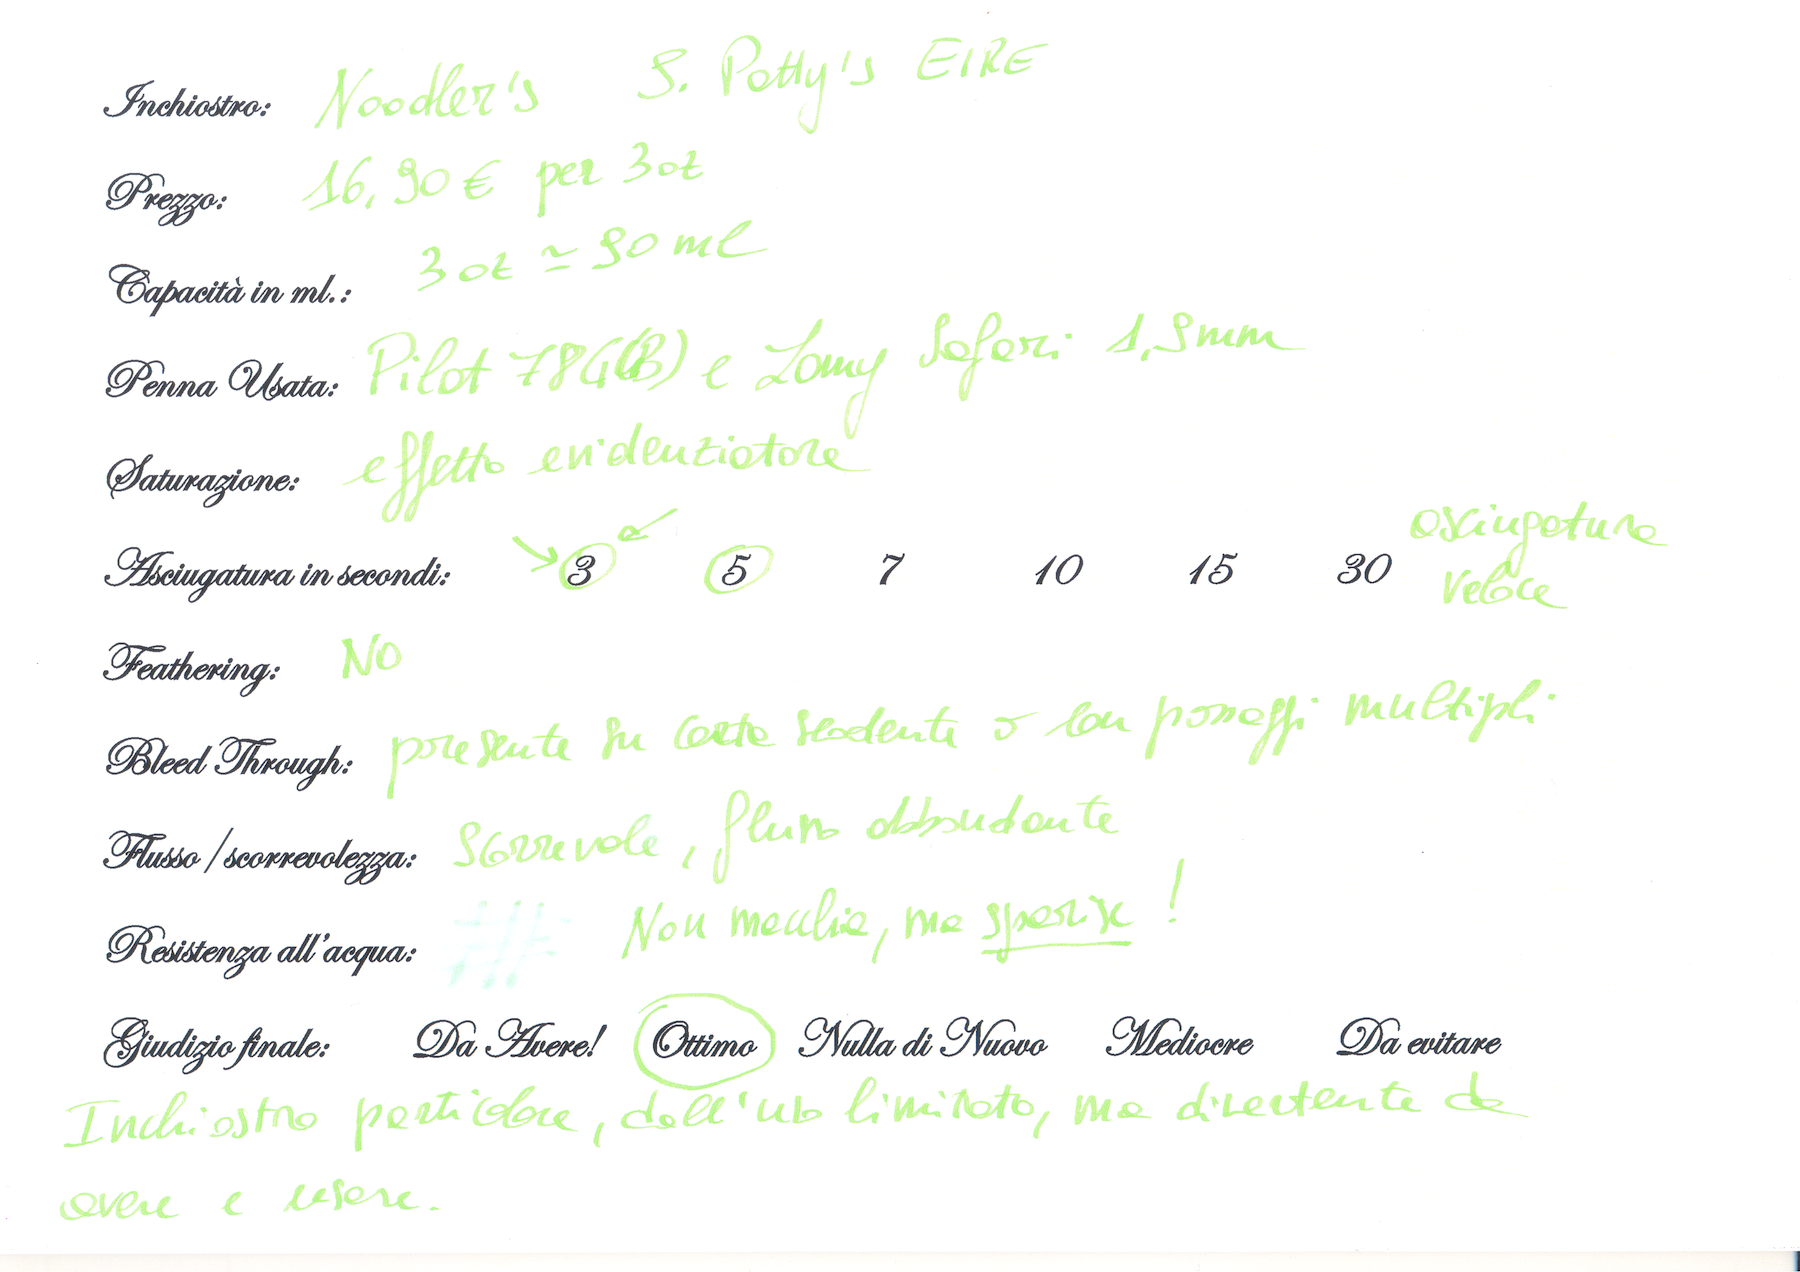 Inchiostro: Noodler's S. Patty's EIRE
Prezzo: 16,90 € per 3 oz
Capacità in ml.: 3 oz ≃ 90 ml
Penna Usata: Pilot 78G(B) e Lamy Safari 1,9mm
Saturazione: effetto evidenziatore
Asciugatura in secondi: 3 5 7 10 15 30 asciugatura
veloce
Feathering: NO
Bleed Through: presente su carta scadente o con passaggi multipli
Flusso / scorrevolezza: Scorrevole, flusso abbondante
Resistenza all'acqua: Non macchia, ma sparisce !
Giudizio finale: Da Avere! Ottimo Nulla di Nuovo Mediocre Da evitare
Inchiostro particolare, dall'uso limitato, ma divertente da
avere e usare.